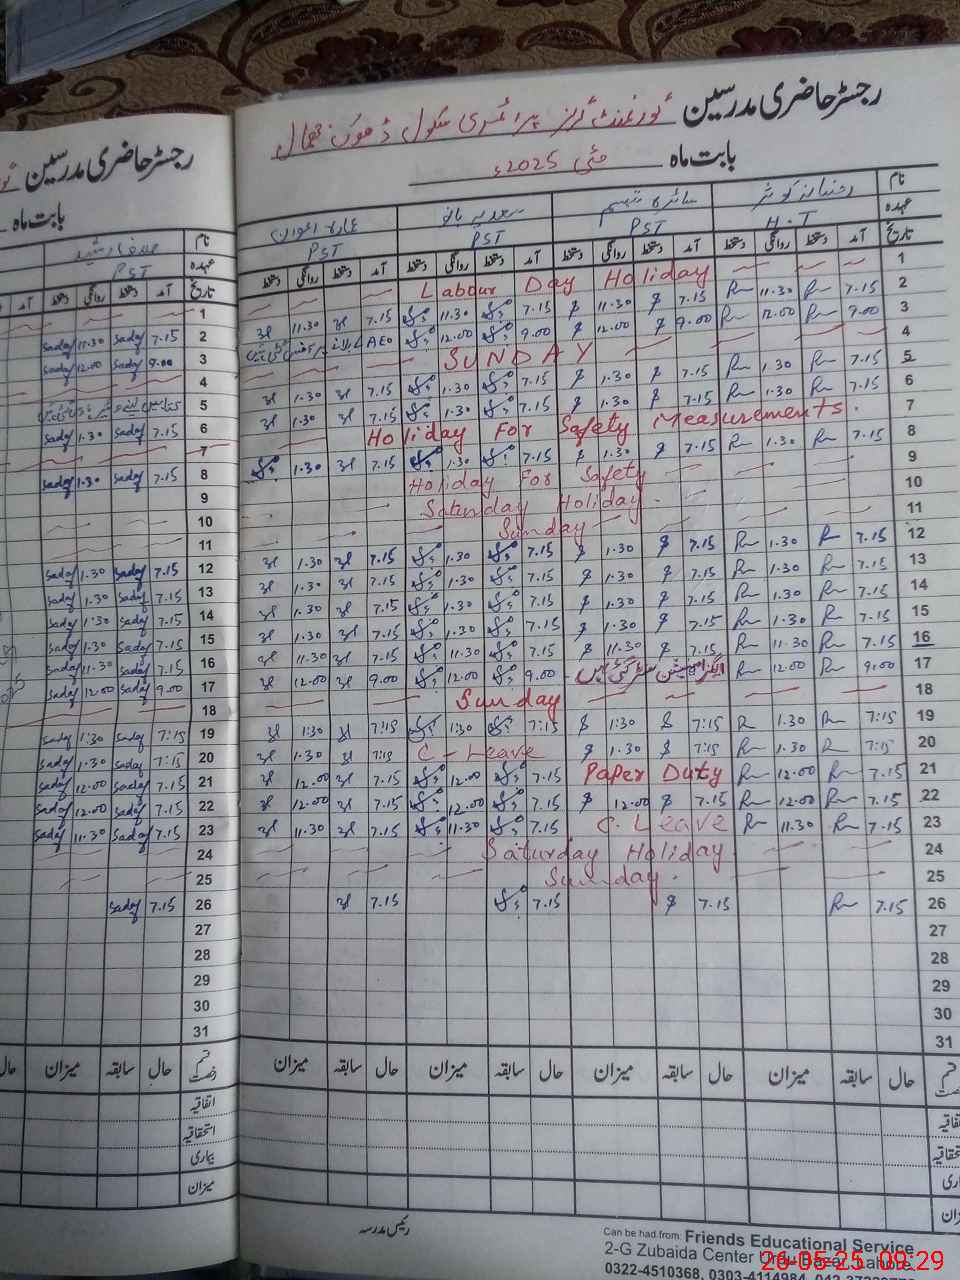 رجسٹر حاضری مدرسین گورنمنٹ گرلز پرائمری سکول ڈھوک جمال
بابت ماہ مئی 2025ء
نام رضیانہ کوثر سائرہ تبسم سعدیہ بانو عمارہ اعوان
عہدہ H.T PST PST PST
تاریخ آمد دستخط روانگی دستخط آمد دستخط روانگی دستخط آمد دستخط روانگی دستخط آمد دستخط روانگی دستخط
1 Labour Day Holiday
2 7.15 11.30 7.15 11.30 7.15 11.30 7.15 11.30
3 9.00 12.00 9.00 12.00 9.00 12.00 AEO
4 SUNDAY
5 7.15 1.30 7.15 1.30 7.15 1.30 7.15 1.30
6 7.15 1.30 7.15 1.30 7.15 1.30 7.15 1.30
7 Holiday For Safety Measurements.
8 7.15 1.30 7.15 1.30 7.15 1.30 7.15 1.30
9 Holiday For Safety
10 Saturday Holiday
11 Sunday
12 7.15 1.30 7.15 1.30 7.15 1.30 7.15 1.30
13 7.15 1.30 7.15 1.30 7.15 1.30 7.15 1.30
14 7.15 1.30 7.15 1.30 7.15 1.30 7.15 1.30
15 7.15 1.30 7.15 1.30 7.15 1.30 7.15 1.30
16 7.15 11.30 7.15 11.30 7.15 11.30 7.15 11.30
17 9.00 12.00 9.00 12.00 9.00 12.00
18 Sunday
19 7:15 1.30 7:15 1:30 7:15 1:30 7:15 1:30
20 7:15 1.30 7:15 1.30 C-Leave 7:15 1.30
21 7.15 12.00 Paper Duty 7.15 12.00 7.15 12.00
22 7.15 12.00 7.15 12.00 7.15 12.00 7.15 12.00
23 7.15 11.30 C.Leave 7.15 11.30 7.15 11.30
24 Saturday Holiday
25 Sunday.
26 7.15 7.15 7.15 7.15
27
28
29
30
31
حال سابقہ میزان حال سابقہ میزان حال سابقہ میزان حال سابقہ میزان
رئیس مدرسہ
Can be had from: Friends Educational Service
2-G Zubaida Center Urdu Bazar, Lahore
0322-4510368, 0303-4114984
رجسٹر حاضری مدرسین
بابت ماہ
نام
عہدہ PST
تاریخ آمد دستخط روانگی دستخط آمد
1
2 7.15 sadaf 11.30 sadaf
3 9.00 sadaf 12.00 sadaf
4
5
6 7.15 sadaf 1.30 sadaf
7
8 7.15 sadaf 1.30 sadaf
9
10
11
12 7.15 sadaf 1.30 sadaf
13 7.15 sadaf 1.30 sadaf
14 7.15 sadaf 1.30 sadaf
15 7.15 sadaf 1.30 sadaf
16 7.15 sadaf 11.30 sadaf
17 9.00 sadaf 12.00 sadaf
18
19 7:15 sadaf 1:30 sadaf
20 7:15 sadaf 1.30 sadaf
21 7.15 sadaf 12.00 sadaf
22 7.15 sadaf 12.00 sadaf
23 7.15 sadaf 11.30 sadaf
24
25
26 7.15 sadaf
27
28
29
30
31
قسم رخصت حال سابقہ میزان حال
اتفاقیہ
استحقاقیہ
بیماری
میزان
26-05-25 09:29